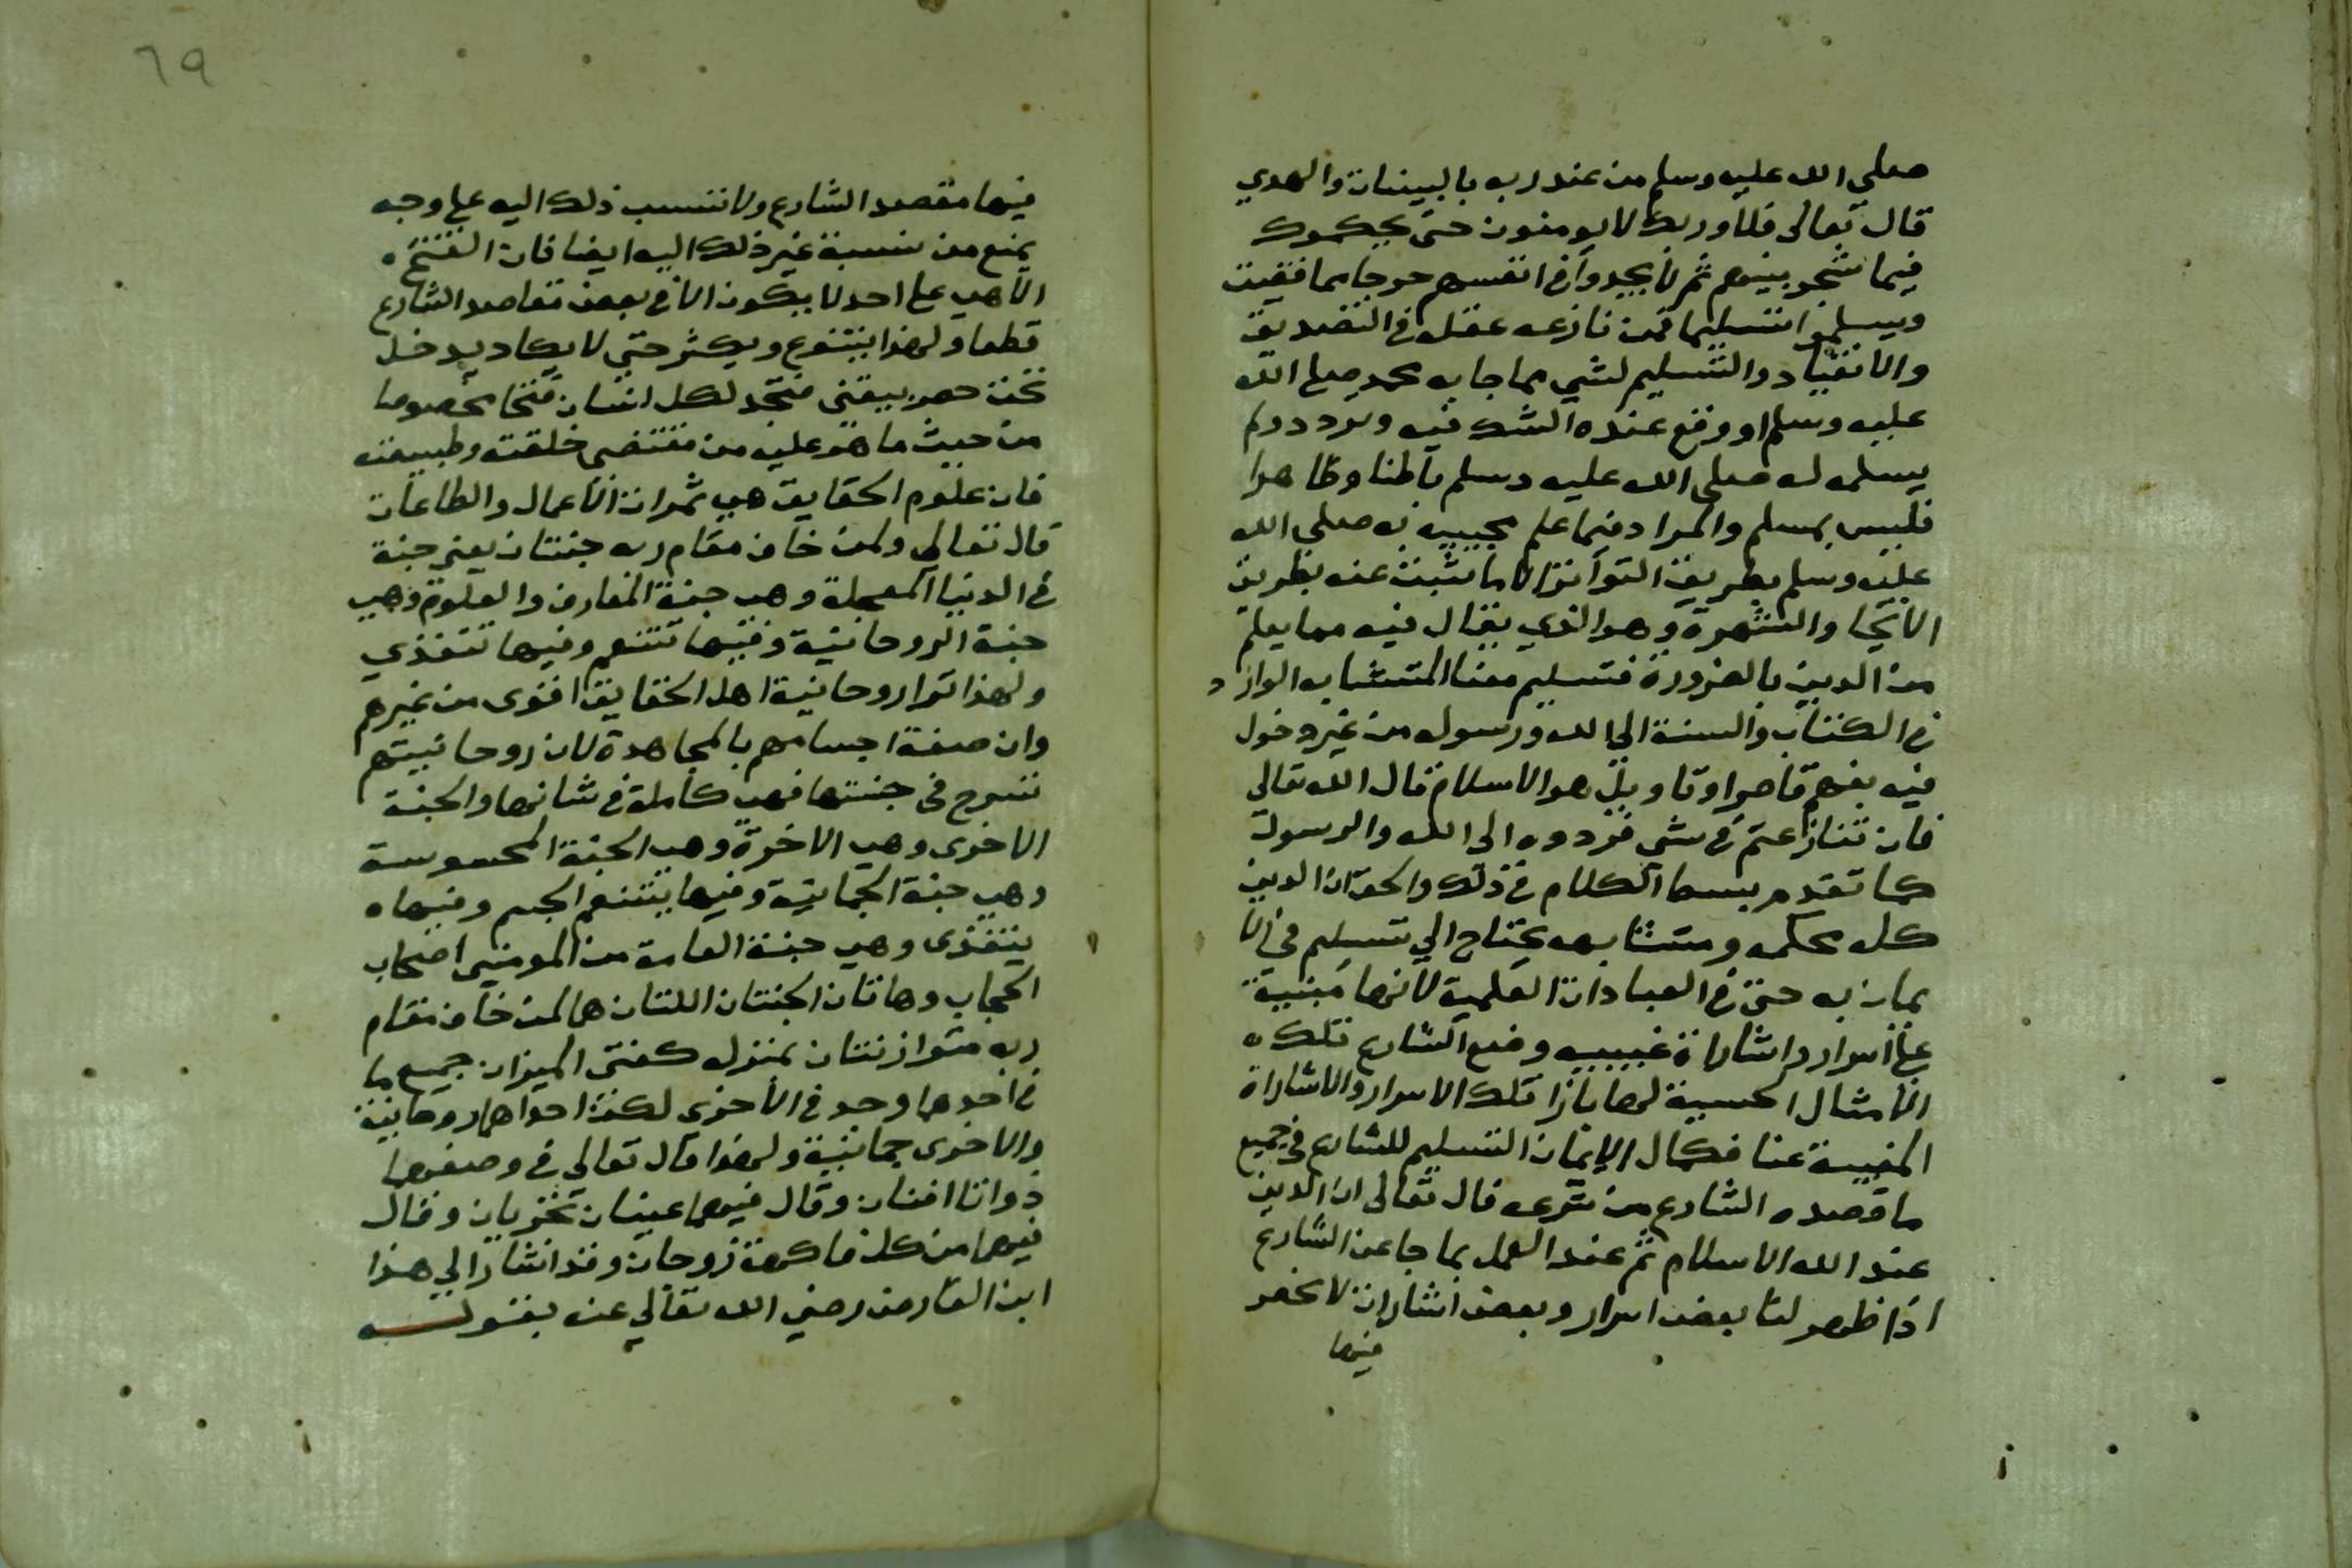 صلي الله عليه وسلم من عند ربه بالبينات والهدي
قال تعالى فلا وربك لا يومنون حتى يحكموك
فيما شجر بينهم ثم لا يجدوا في انفسهم حرجا مما قضيت
ويسلموا تسليما فمن نازعه عقله في التصديق
والانقياد والتسليم لشي مما جا به محمد صلى الله
عليه وسلم او وقع عنده الشك فيه وتردد ولم
يسلمه له صلى الله عليه وسلم باطنا وظاهرا
فليس بمسلم والمراد فيما علم مجييه به صلى الله
عليه وسلم بطريق التواتر لا ما يثبت عنه بطريق
الاحا والشهرة وهو الذي يقال فيه مما يعلم
من الدين بالضرورة فتسليم معنا المتشابه الوارد
في الكتاب والسنة الى الله ورسوله من غير دخول
فيه بفهم قاصر او تاويل هو الاسلام قال الله تعالى
فان تنازعتم في شي فردوه الى الله والرسول
كما تقدم بسط الكلام في ذلك والحق ان الدين
كله محكمه ومتشابهه يحتاج الي تسليم في الا
يمان به حتى في العبادات العلمية لانها مبنية
على اسرار واشاراة غيبيه وضع الشارع تلك
الامثال الحسية لها بازا تلك الاسرار والاشاراة
المغيبة عنا فكمال الايمان التسليم للشارع في جميع
ما قصده الشارع من شرعه قال تعالى ان الدين
عند الله الاسلام ثم عند العمل بما جا عن الشارع
اذا ظهر لنا بعض اسرار وبعض اشارات لا نحصر
فيها
٦٩
فيها مقصد الشارع ولا ننسب ذلك اليه على وجه
يمنع من نسبة غير ذلك اليه ايضا فان الفتح
الالهي على احد لا يكون الا في بعض مقاصد الشارع
قطعا ولهذا يتنوع ويكثر حتى لا يكاد يدخل
تحت حصر بيقنى فتجد لكل انسان فتحا مخصوصا
من حيث ما هو عليه من مقتضى خلقته وطبيعته
فان علوم الحقايق هي ثمرات الاعمال والطاعات
قال تعالي ولمن خاف مقام ربه جنتان يعني جنة
في الدنيا المعجلة وهي جنة المعارف والعلوم وهي
جنة الروحانية وفيها تتنعم وفيها تتغذي
ولهذا ترا روحانية اهل الحقايق اقوى من غيرهم
وان ضعفة اجسامهم بالمجاهدة لان روحانيتهم
تسرح في جنتها فهي كاملة في شانها والجنة
الاخرى وهي الاخرة وهي الجنة المحسوسة
وهي جنة الجمانية وفيها يتنعم الجسم وفيها
يتغذى وهي جنة العامة من المومنين اصحاب
الحجاب وهاتان الجنتان اللتان هما لمن خاف مقام
ربه متوازنتان بمنزله كفتى الميزان جميع ما
في احدهما وجد في الاخرى لكن احداهما روحانية
والاخرى جمانية ولهذا قال تعالي في وصفهما
ذواتا افنان وقال فيهما عينان تجريان وقال
فيهما من كل فاكهة زوجان وقد اشار الي هذا
ابن الفارض رضي الله تعالي عنه بقوله